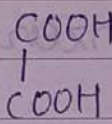 COOH
|
COOH